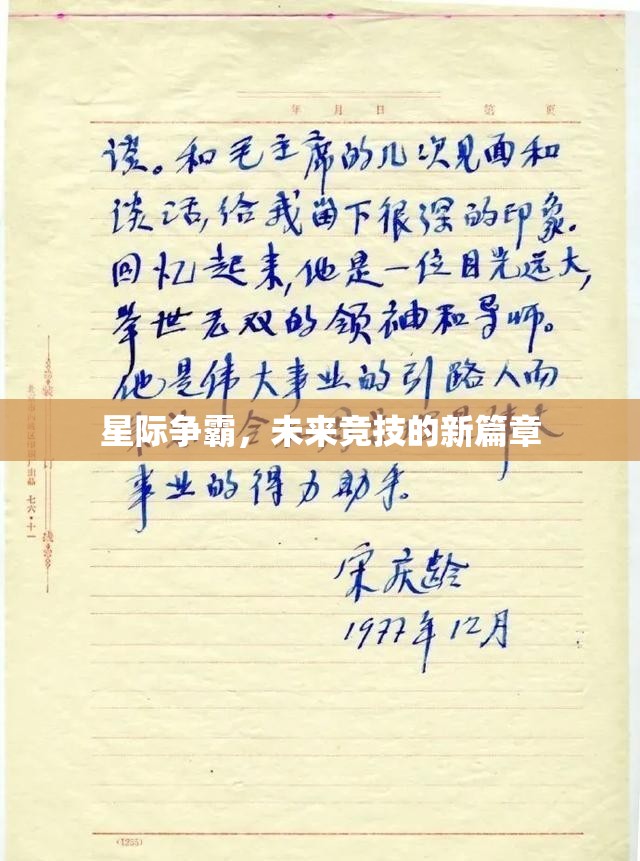 年 月 日 第 页
谈。和毛主席的几次见面和
谈话,给我留下很深的印象.
回忆起来,他是一位目光远大,
举世无双的领袖和导师。
他是伟大事业的引路人而
星际争霸，未来竞技的新篇章
事业的得力助手。
宋庆龄
1977年12月
装
订
线
七六·十一
(1255)